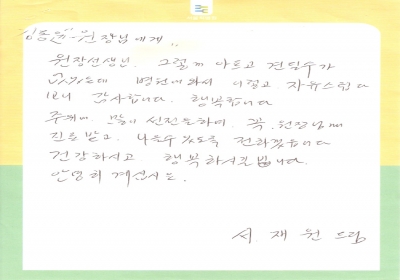 원장님에게
원장선생님. 그렇게 아프고 견딜수가
없었는데 병원에와서 이렇고 자유스럽다
보니 감사합니다. 행복합니다
주위에 많이 선전을하며, 꼭 원장님께
진료받고 나을수있도록 전하겠습니다
건강하시고 행복하시길빕니다.
안녕히 계십시요.
서 재 원 드림